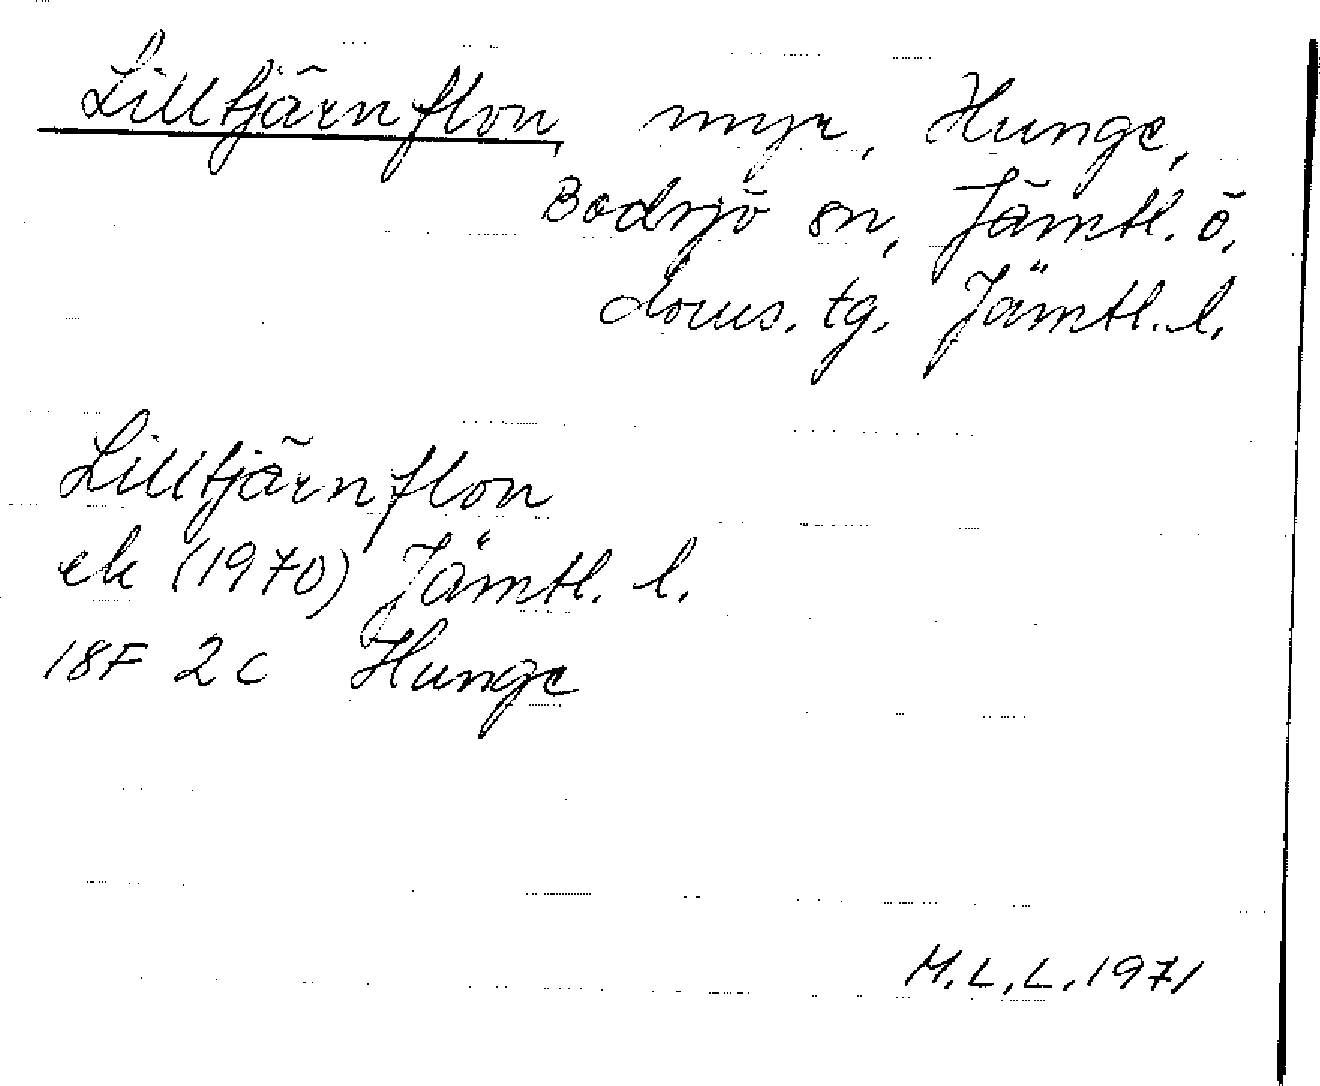 Lilltjärnflon, myr, Hunge,
Bodsjö sn, Jämtl. ö.
doms. tg. Jämtl. l.
Lilltjärnflon
ek (1970) Jämtl. l.
18F 2c Hunge
M.L.L. 1971